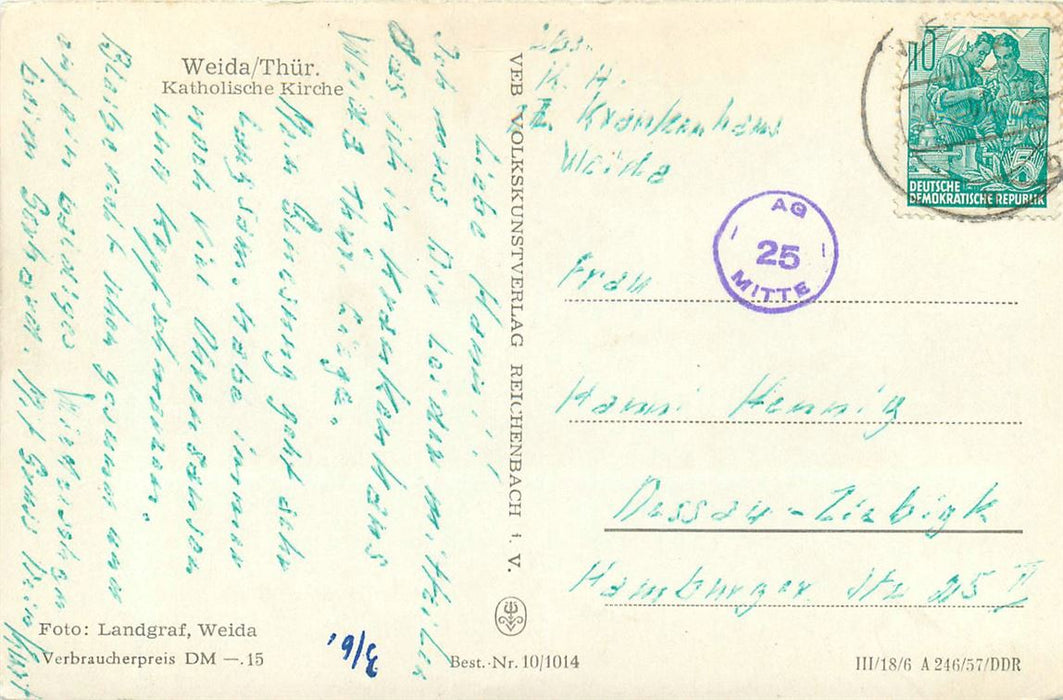 Weida/Thür.
Katholische Kirche
Liebe Hanni!
Ich muss Dir leider mitteilen
Das ich in Krankenhaus
Weida Thür. liege.
Mein Genesung geht sehr
langsam. habe immer
noch viel Ohrensausen
nun Kopfschmerzen.
Bleibe recht schön gesund und
auf ein baldiges Wiedersehn
Gruss Dein Kurt
Foto: Landgraf, Weida
Verbraucherpreis DM —.15
3/6.
VEB VOLKSKUNSTVERLAG REICHENBACH i. V.
Best.-Nr. 10/1014
Krankenhaus
Weida
10
DEUTSCHE
DEMOKRATISCHE REPUBLIK
5
AG
25
MITTE
Frau
Hanni Hennig
Dessau-Ziebigk
Hamburger Str 25 II
III/18/6 A 246/57/DDR